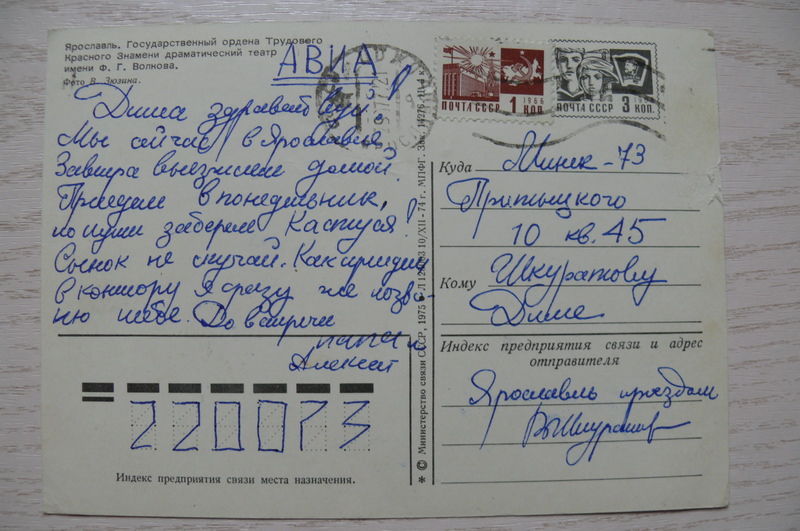 Ярославль. Государственный ордена Трудового
Красного Знамени драматический театр
имени Ф. Г. Волкова.
Фото В. Зюзина.
АВИА
Дима здравствуй!
Мы сейчас в Ярославле
Завтра выезжаем домой.
Приедем в понедельник,
по пути заберем Кастуся!
Сынок не скучай. Как приеду
в контору Я сразу же позво-
ню тебе. До встречи
папа и
Алексей
220073
Индекс предприятия связи места назначения.
* © Министерство связи СССР, 1975
10/XII-74 г. МПФГ. Зак.
ПОЧТА СССР 1 КОП.
1966
ПОЧТА СССР 3 КОП.
Куда Минск-73
Притыцкого
10 кв. 45
Кому Шкуратову
Диме
Индекс предприятия связи и адрес
отправителя
Ярославль проездом